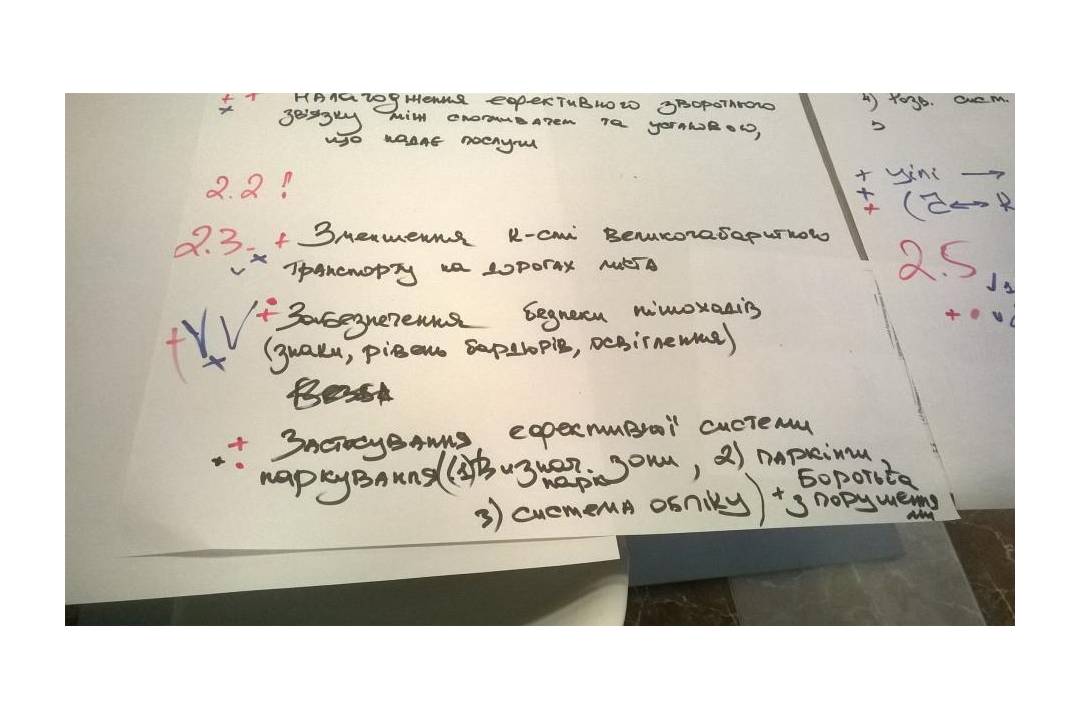 + + Налагодження ефективного зворотнього
звязку між споживачем та установою,
що надає послуги
2.2 !
2.3. + Зменшення к-сті великогабаритного
транспорту на дорогах міста
+ Забезпечення безпеки пішоходів
(знаки, рівень бардюрів, освітлення)
+ Застосування ефективної системи
паркування (1) Визнач. зони, 2) паркінги,
парк
3) система обліку) + Боротьба
з порушення
ми
4) Розв. сист.
5
+ цілі →
+ (
2.5
+